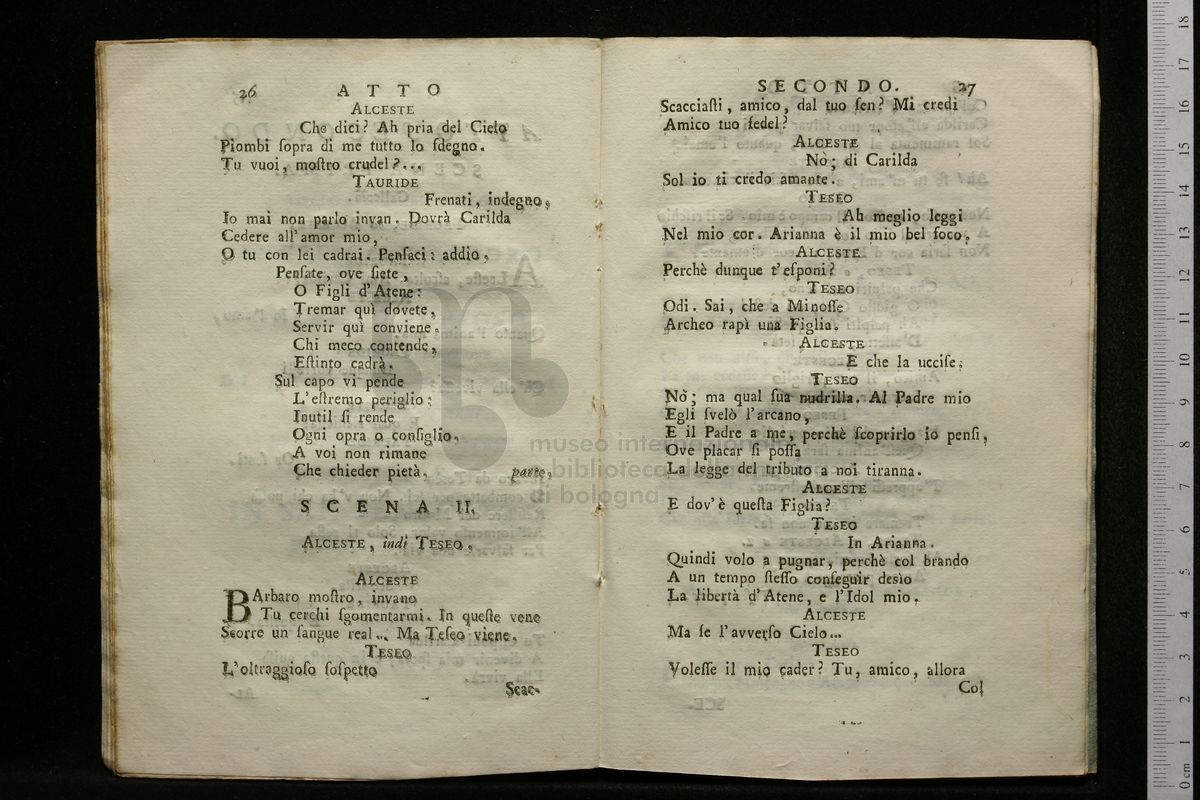 26 ATTO
ALCESTE
Che dici? Ah pria del Cielo
Piombi ſopra di me tutto lo ſdegno.
Tu vuoi, moſtro crudel?...
TAURIDE
Frenati, indegno,
Io mai non parlo invan. Dovrà Carilda
Cedere all'amor mio,
O tu con lei cadrai. Penſaci: addio,
Penſate, ove ſiete,
O Figli d'Atene:
Tremar quì dovete,
Servir quì conviene.
Chi meco contende,
Eſtinto cadrà.
Sul capo vi pende
L'eſtremo periglio:
Inutil ſi rende
Ogni opra o conſiglio,
A voi non rimane
Che chieder pietà. parte,
SCENA II.
ALCESTE, indi TESEO.
ALCESTE
BArbaro moſtro, invano
Tu cerchi ſgomentarmi. In queſte vene
Scorre un ſangue real... Ma Teſeo viene.
TESEO
L'oltraggioſo ſoſpetto
Scac-
SECONDO. 27
Scacciaſti, amico, dal tuo ſen? Mi credi
Amico tuo fedel?
ALCESTE
Nò; di Carilda
Sol io ti credo amante.
TESEO
Ah meglio leggi
Nel mio cor. Arianna è il mio bel foco,
ALCESTE
Perchè dunque t'eſponi?
TESEO
Odi. Sai, che a Minoſſe
Archeo rapì una Figlia.
ALCESTE
E che la ucciſe.
TESEO
Nò; ma qual ſua nudrilla. Al Padre mio
Egli ſvelò l'arcano,
E il Padre a me, perchè ſcoprirlo io penſi,
Ove placar ſi poſſa
La legge del tributo a noi tiranna.
ALCESTE
E dov'è queſta Figlia?
TESEO
In Arianna.
Quindi volo a pugnar, perchè col brando
A un tempo ſteſſo conſeguir desìo
La libertà d'Atene, e l'Idol mio.
ALCESTE
Ma ſe l'avverſo Cielo...
TESEO
Voleſſe il mio cader? Tu, amico, allora
Col
museo internazionale
biblioteca della musica
di bologna
0 cm 1 2 3 4 5 6 7 8 9 10 11 12 13 14 15 16 17 18